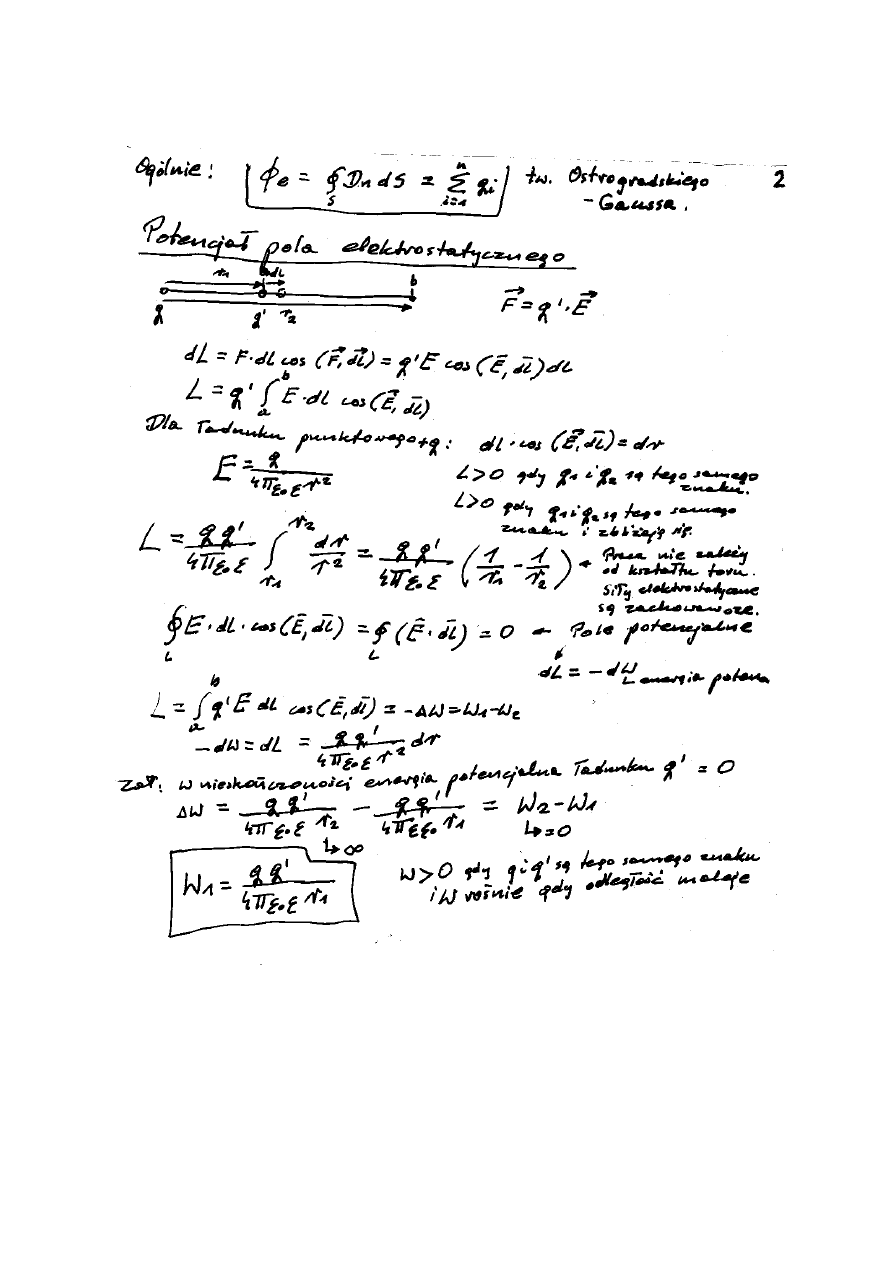 Ogólnie: Φe = ∮S Dn dS = Σ(i=1, n) qi tw. Ostrogradskiego 2
- Gaussa.
Potencjał pola elektrostatycznego
r1 dL b
q q' r2
F⃗ = q'·E⃗
dL = F·dL cos (F⃗, dL⃗) = q'E cos (E̅, dL̅) dL
L = q' ∫a^b E·dL cos (E⃗, dL̅)
Dla ładunku punktowego +q: dL·cos (E⃗, dL̅) = dr
E = q / 4πε0 ε r² L>0 gdy q1 i q2 są tego samego
znaku.
L>0 gdy q1 i q2 są tego samego
znaku i zbliżają się.
L = qq' / 4πε0 ε ∫r1^r2 dr / r² = qq' / 4πε0 ε (1/r1 - 1/r2) ← Praca nie zależy
od kształtu toru.
Siły elektrostatyczne
są zachowawcze.
∮L E·dL·cos (E̅, dL̅) = ∮L (E̅·dL̅) = 0 ← Pole potencjalne
dL = -dW
↳ energia potencja
L = ∫a^b q'E dL cos (E̅, dL̅) = -ΔW = W1 - W2
-dW = dL = qq' / 4πε0 ε r² dr
Zał: w nieskończoności energia potencjalna ładunku q' = 0
ΔW = qq' / 4πε0 ε r2 - qq' / 4πεε0 r1 = W2 - W1
↳ ∞ ↳ = 0
W1 = qq' / 4πε0 ε r1 W>0 gdy q i q' są tego samego znaku
i W rośnie gdy odległość maleje